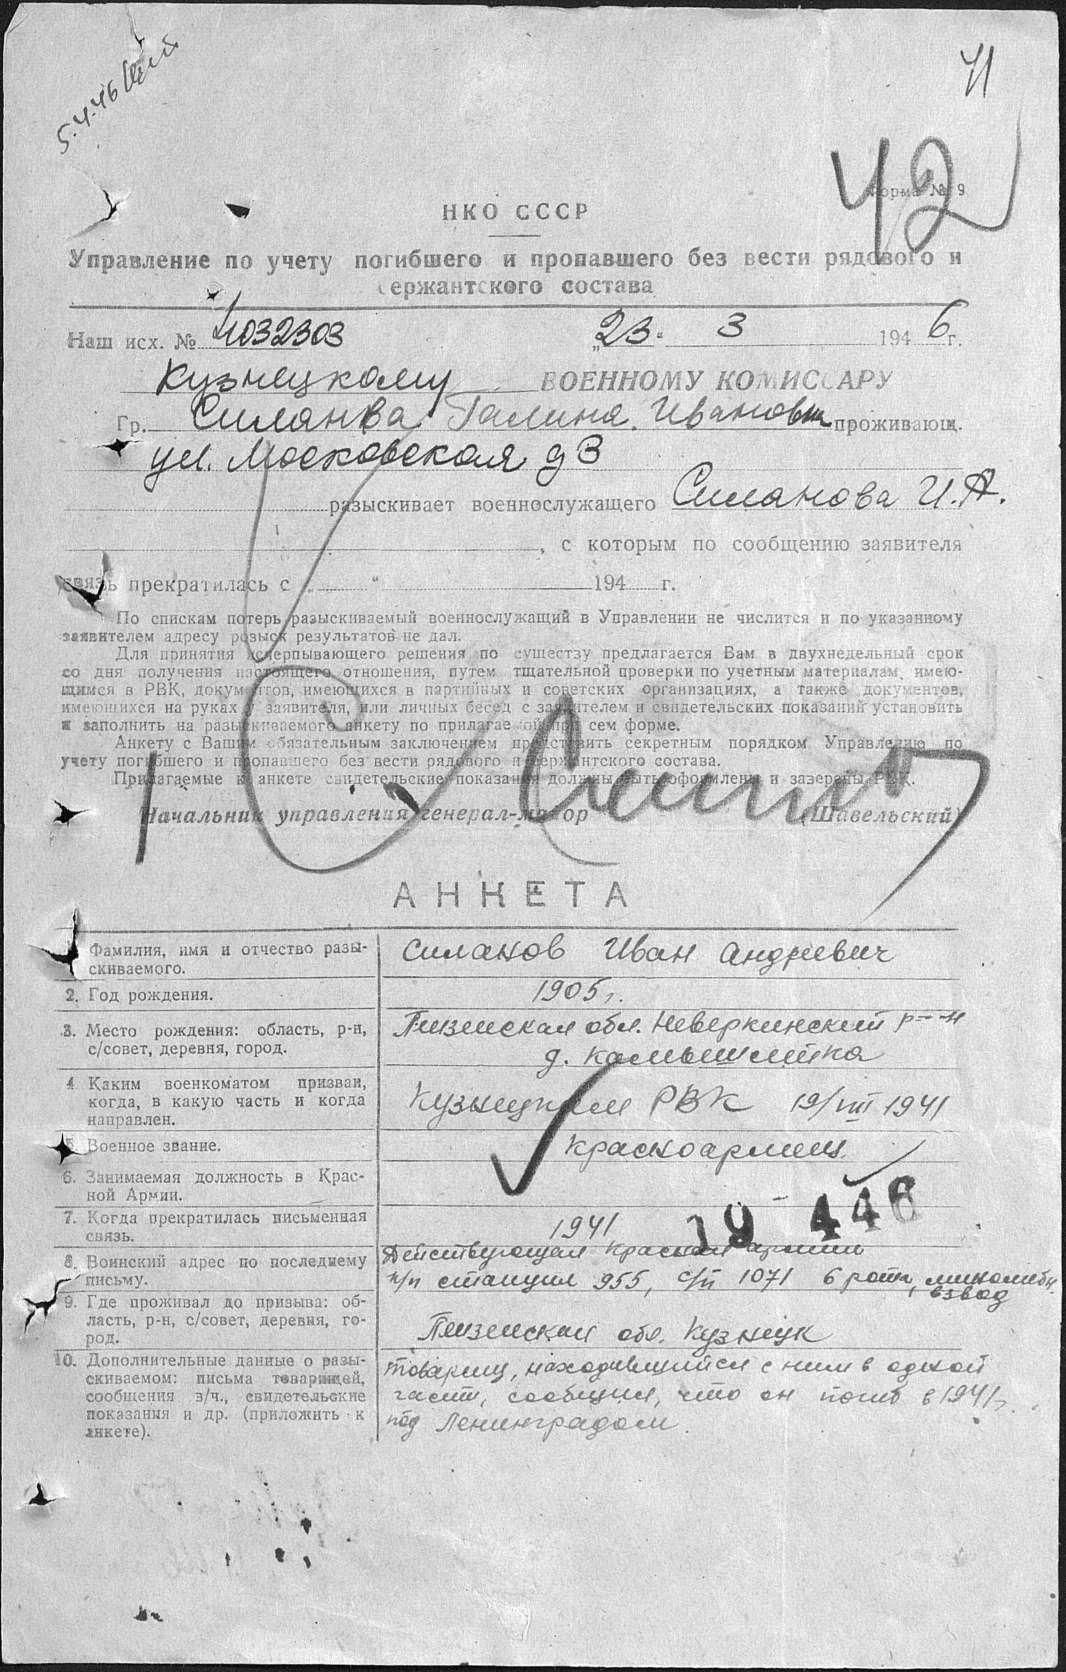 5.4.46
41
42
Форма № 9
НКО СССР
Управление по учету погибшего и пропавшего без вести рядового и
сержантского состава
Наш исх. № 1032303 „23" 3 1946 г.
Кузнецкому ВОЕННОМУ КОМИССАРУ
Гр. Силанва Галина Ивановна проживающ.
ул. Московская д 3
разыскивает военнослужащего Силанова И.А.
, с которым по сообщению заявителя
связь прекратилась с „ " 194 г.
По спискам потерь разыскиваемый военнослужащий в Управлении не числится и по указанному
заявителем адресу розыск результатов не дал.
Для принятия исчерпывающего решения по существу предлагается Вам в двухнедельный срок
со дня получения настоящего отношения, путем тщательной проверки по учетным материалам, имею-
щимся в РВК, документов, имеющихся в партийных и советских организациях, а также документов,
имеющихся на руках у заявителя, или личных бесед с заявителем и свидетельских показаний установить
и заполнить на разыскиваемого анкету по прилагаемой при сем форме.
Анкету с Вашим обязательным заключением представить секретным порядком Управлению по
учету погибшего и пропавшего без вести рядового и сержантского состава.
Прилагаемые к анкете свидетельские показания должны быть оформлены и заверены РВК.
Начальник управления генерал-майор (Шавельский)
АНКЕТА
Фамилия, имя и отчество разы-
скиваемого.
Силанов Иван Андреевич
2. Год рождения.
1905 г.
3. Место рождения: область, р-н,
с/совет, деревня, город.
Пензенская обл. Неверкинский р-н
д. Камышлейка
4 Каким военкоматом призван,
когда, в какую часть и когда
направлен.
Кузнецким РВК 19/VIII 1941
5. Военное звание.
красноармеец
6. Занимаемая должность в Крас-
ной Армии.
7. Когда прекратилась письменная
связь.
1941
19 446
8. Воинский адрес по последнему
письму.
Действующая красная армия
п/п станция 955, с/п 1071 6 рота, миномётн.
взвод
9. Где проживал до призыва: об-
ласть, р-н, с/совет, деревня, го-
род.
Пензенская обл. Кузнецк
10. Дополнительные данные о разы-
скиваемом: письма товарищей,
сообщения в/ч., свидетельские
показания и др. (приложить к
анкете).
товарищ, находившийся с ним в одной
части, сообщил, что он погиб в 1941 г.
под Ленинградом